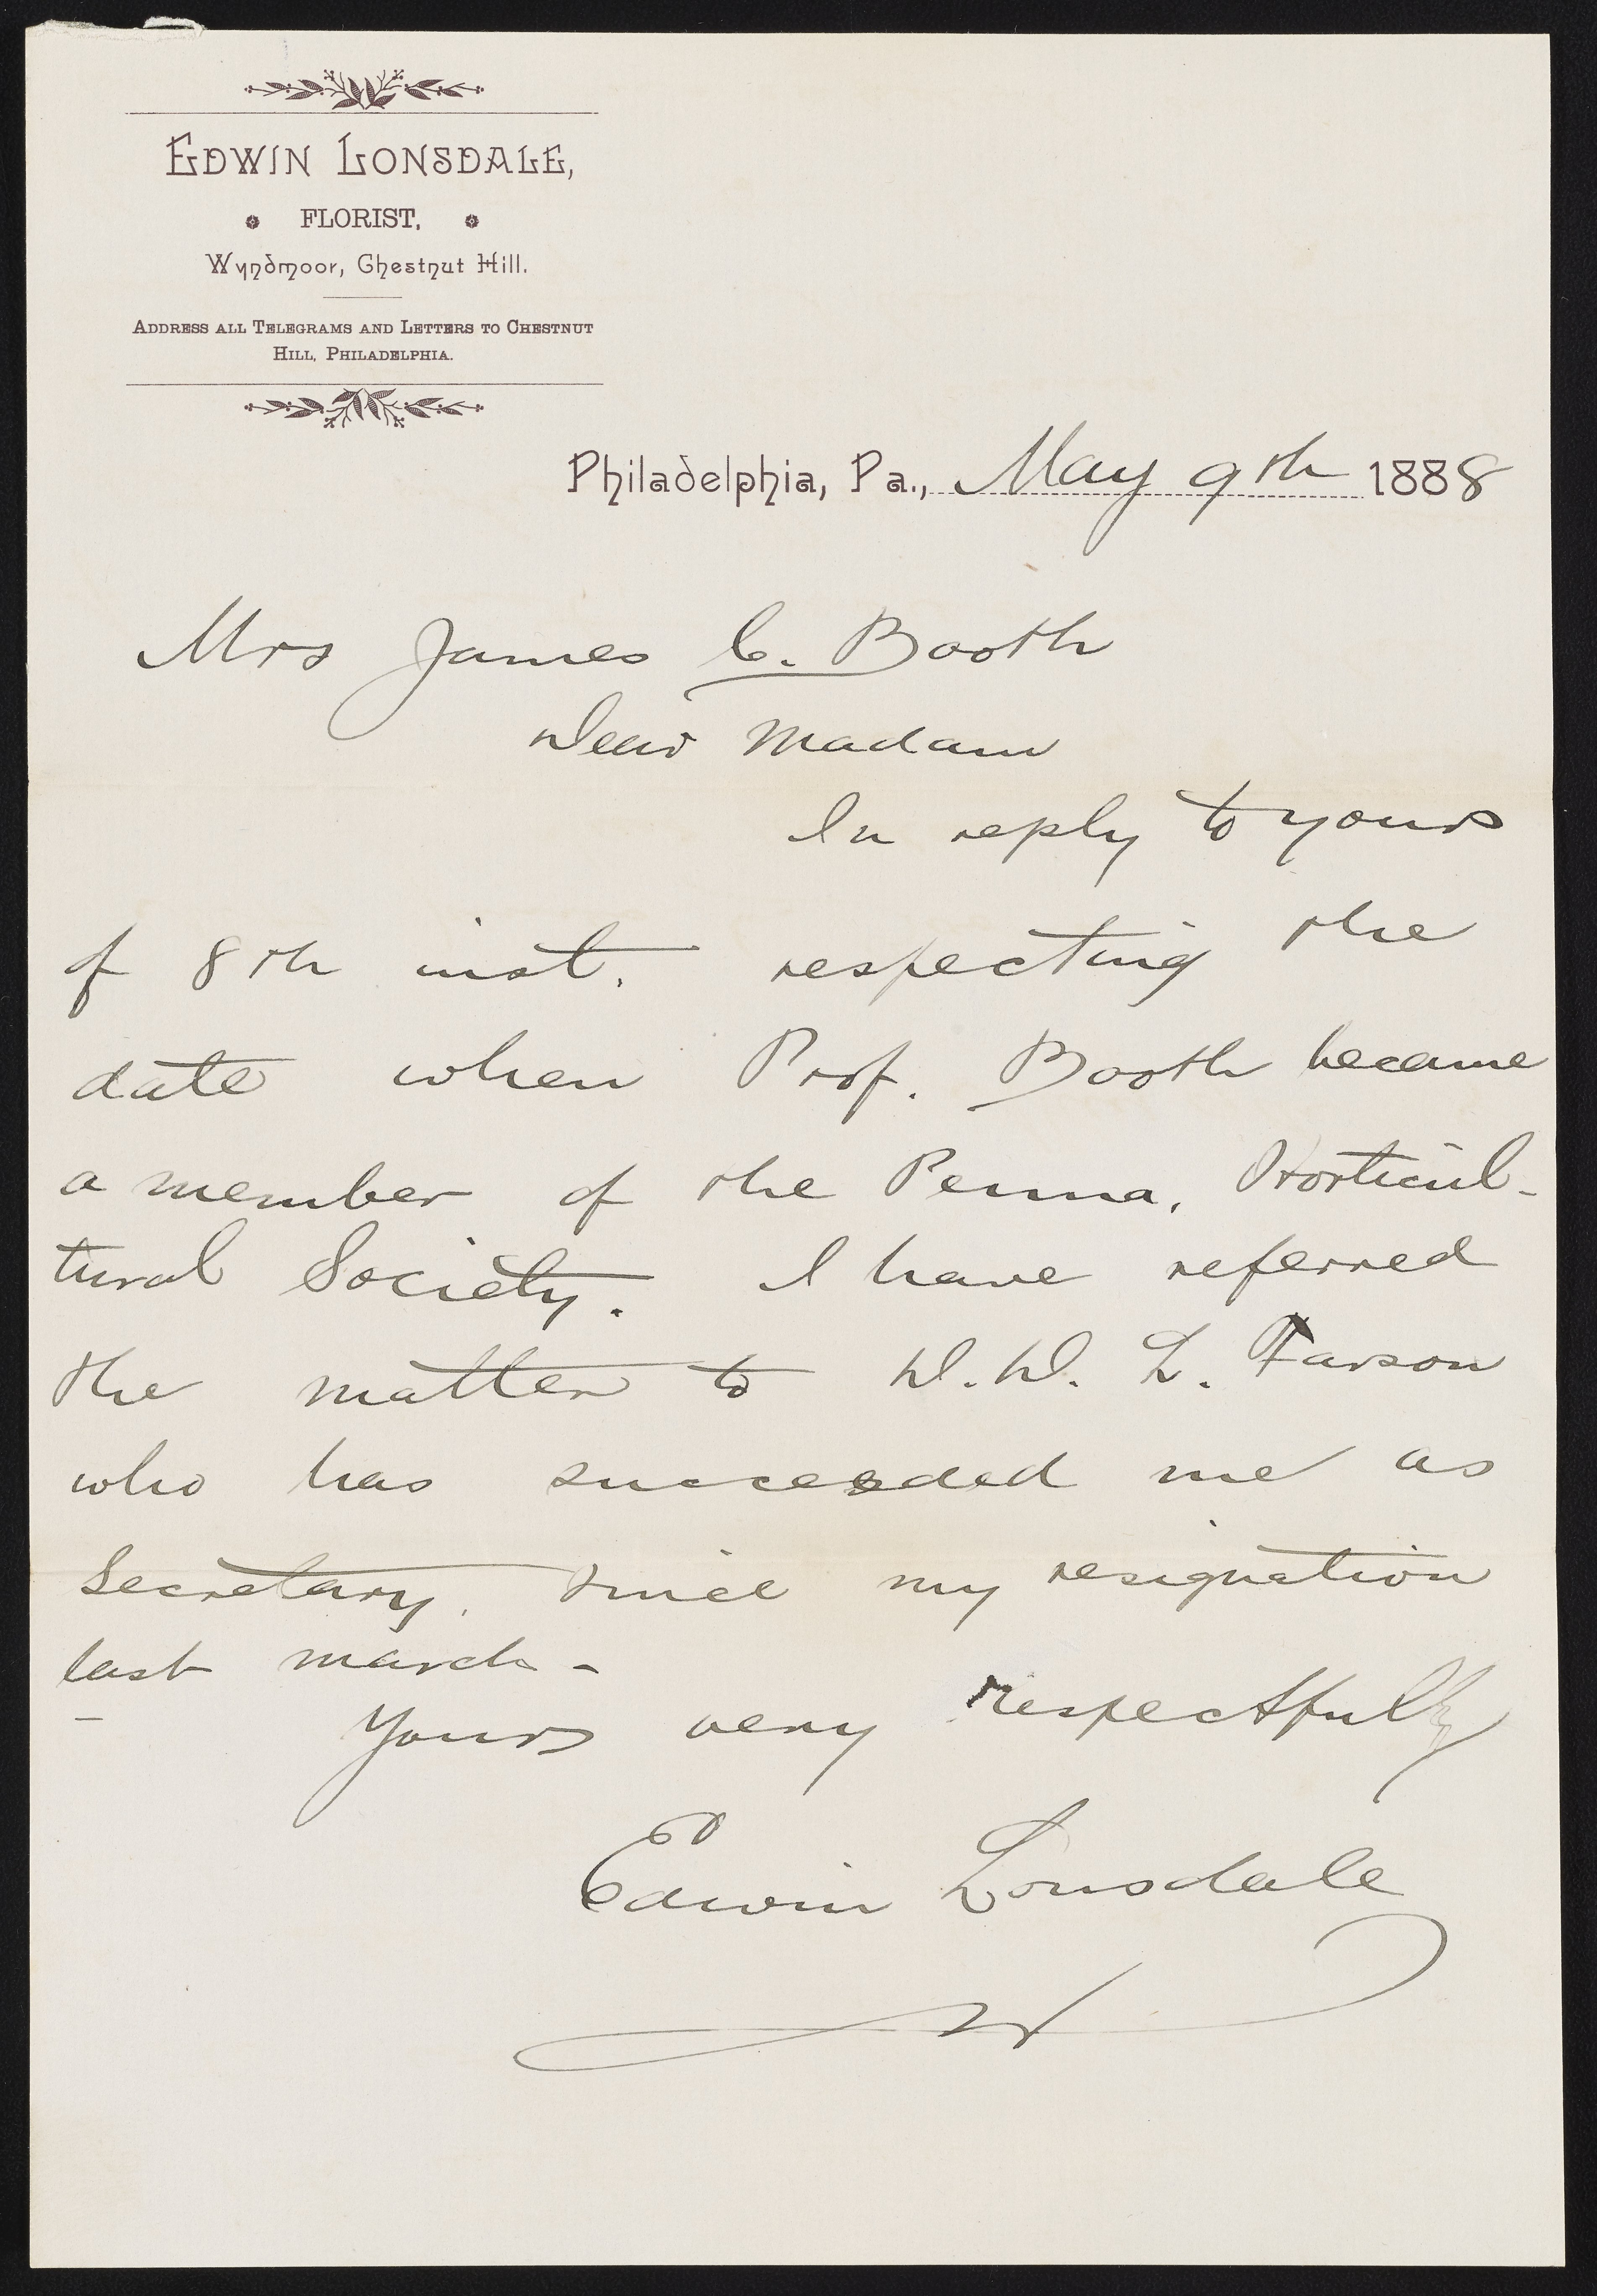 EDWIN LONSDALE,
FLORIST,
Wyndmoor, Chestnut Hill.
ADDRESS ALL TELEGRAMS AND LETTERS TO CHESTNUT
HILL, PHILADELPHIA.
Philadelphia, Pa., May 9th 1888
Mrs James C. Booth
Dear Madam
In reply to yours
of 8th inst. respecting the
date when Prof. Booth became
a member of the Penna. Horticul-
tural Society. I have referred
the matter to D. D. L. Farson
who has succeeded me as
Secretary. since my resignation
last march -
Yours very respectfully
Edwin Lonsdale